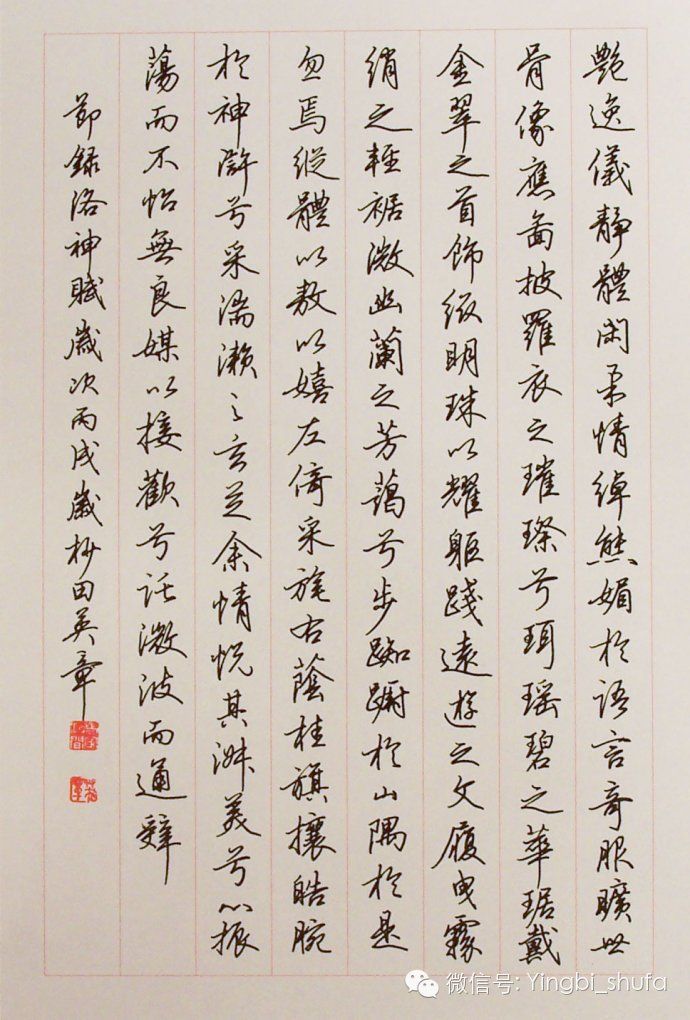 艷逸儀靜體閑柔情綽態媚於語言奇服曠世
骨像應圖披羅衣之璀璨兮珥瑶碧之華琚戴
金翠之首飾綴明珠以耀軀踐遠遊之文履曳霧
綃之輕裾微幽蘭之芳藹兮步踟躕於山隅於是
忽焉縱體以敖以嬉左倚采旄右蔭桂旗攘皓腕
於神滸兮采湍瀨之玄芝余情悅其淑美兮心振
蕩而不怡無良媒以接歡兮託微波而通辭
節録洛神賦歲次丙戌歲杪田英章
微信号: Yingbi_shufa